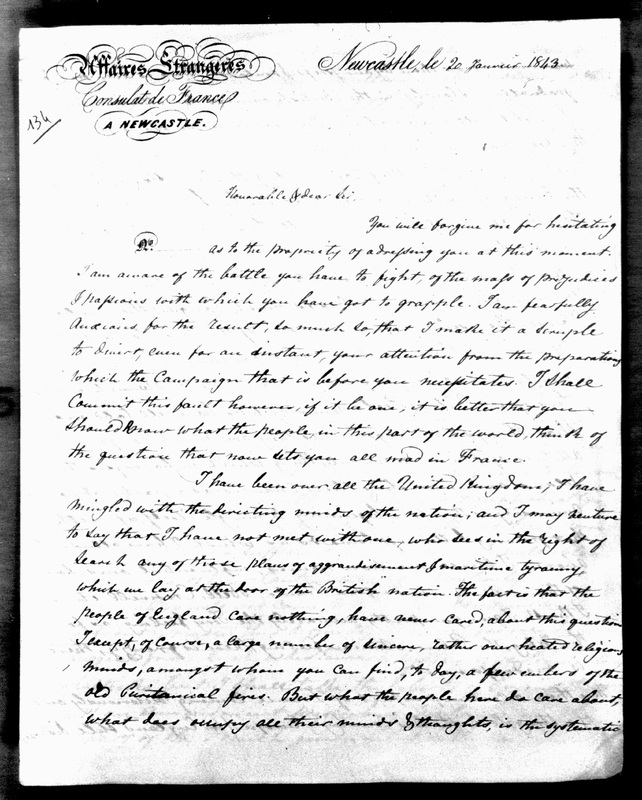 Affaires Etrangères
Consulat de France
A NEWCASTLE.
Newcastle, le 20 Janvier 1843
134
Honorable & dear Sir,
You will forgive me for hesitating
No. as to the propriety of adressing you at this moment.
I am aware of the battle you have to fight, of the mass of prejudices
& passions with which you have got to grapple. I am fearfully
anxious for the result, so much so, that I make it a scruple
to divert, even for an instant, your attention from the preparations
which the Campaign that is before you necessitates. I shall
Commit this fault however, if it be one, it is better that you
should know what the people, in this part of the world, think of
the question that now sets you all mad in France.
I have been over all the United Kingdom; I have
mingled with the directing minds of the nation; and I may venture
to say that I have not met with one, who sees in the right of
search any of those plans of aggrandisement & maritime tyranny,
which we lay at the door of the British nation. The fact is that the
people of England care nothing, have never cared, about this question
I except, of course, a large number of sincere, rather over heated religious
minds, amongst whom you can find, to day, a few embers of the
old Puritanical fires. But what the people here do care about,
what does occupy all their minds & thoughts, is the systematic